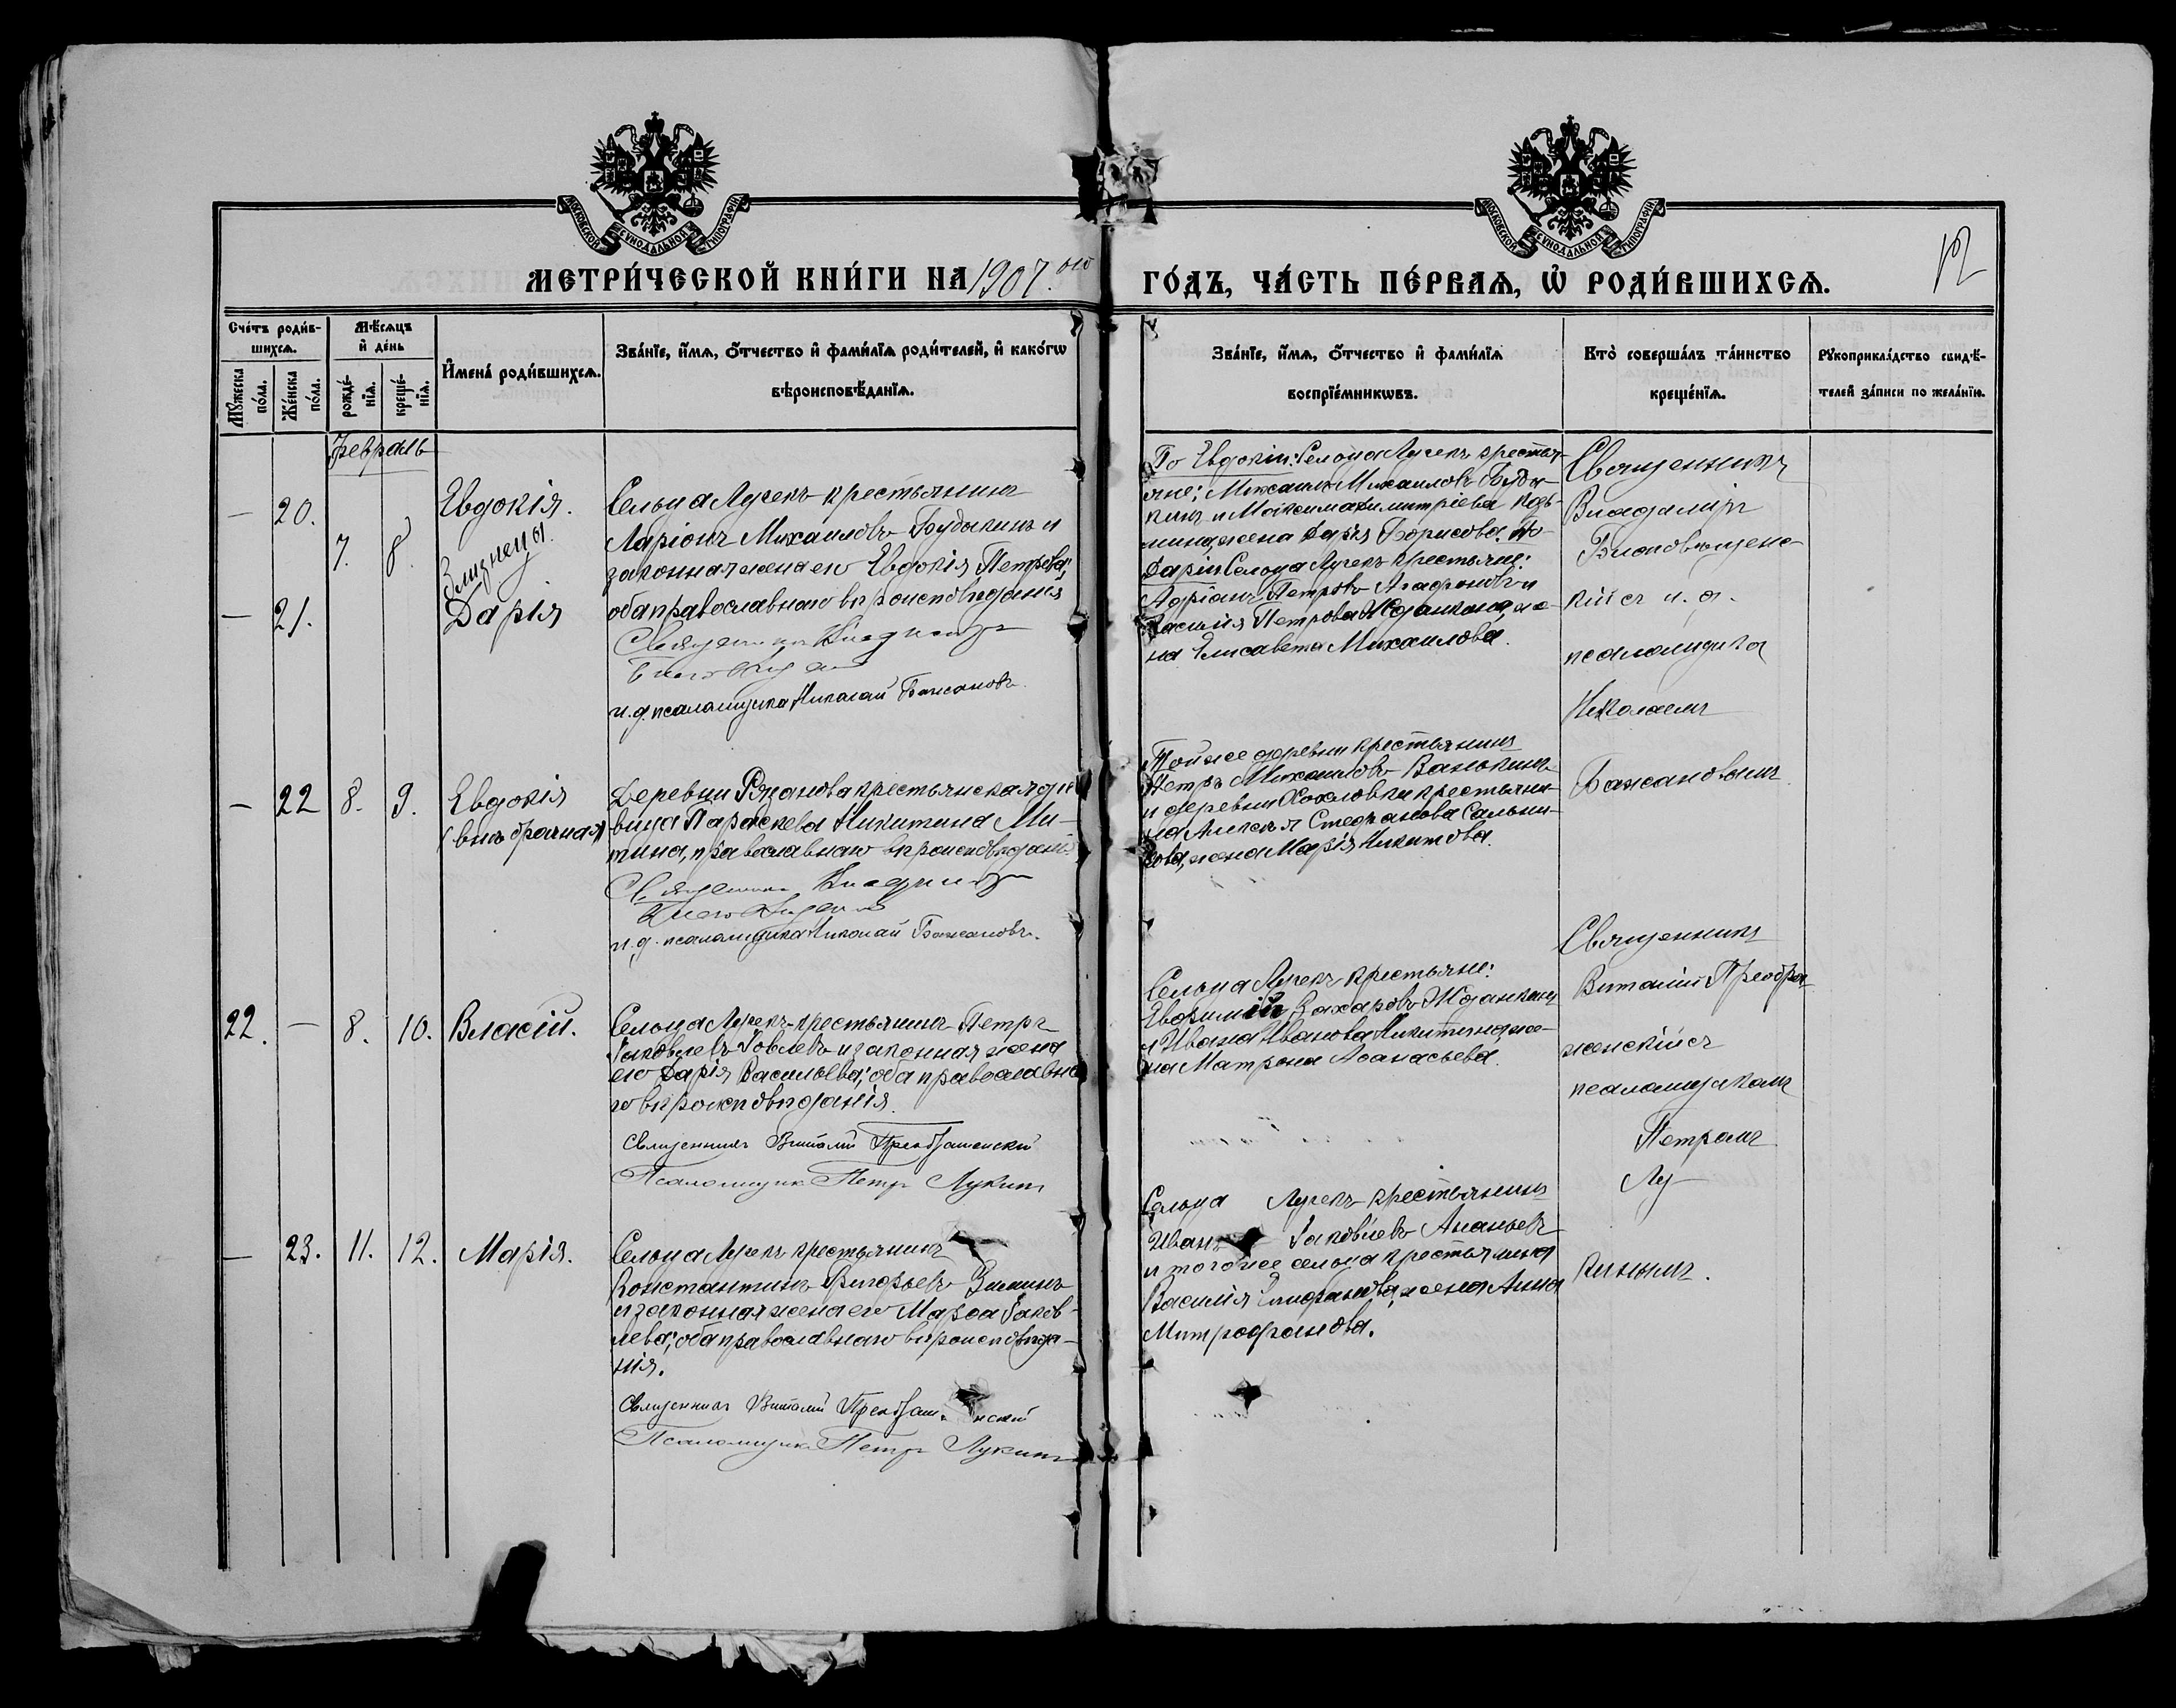 МЕТРИ́ЧЕСКОЙ КНИ́ГИ НА 1907.ого ГО́ДЪ, ЧА́СТЬ ПЕ́РВАѦ, Ѡ҆ РОДИ́ВШИХСѦ.
12
МОСКОВСКОЙ СѴНОДАЛЬНОЙ ТИПОГРАФІИ
МОСКОВСКОЙ СѴНОДАЛЬНОЙ ТИПОГРАФІИ
Сче́тъ роди́в-
шихсѧ.
Мꙋ́жеска по́ла.
Же́нска по́ла.
Мѣ́сѧцъ
и҆ де́нь
рожде́-
нїѧ.
креще́-
нїѧ.
И҆мена̀ роди́вшихсѧ.
Зва́нїе, и҆́мѧ, ѻ҆́тчество и҆ фами́лїѧ роди́телей, и҆ како́гѡ
вѣроисповѣ́данїѧ.
Зва́нїе, и҆́мѧ, ѻ҆́тчество и҆ фами́лїѧ
воспрїе́мникѡвъ.
Кто̀ соверша́лъ та́инство
креще́нїѧ.
Рꙋкоприкла́дство свидѣ́-
телей за́писи по жела́нїю.
Февраль
— 20.
7. 8.
Евдокія.
Близнецы.
— 21.
Дарія
Сельца Лучекъ крестьянинъ
Ларіонъ Михаиловъ Будыкинъ и
законная жена его Евдокія Петрова;
оба православнаго вѣроисповѣданія
Священникъ Владимиръ
и.д. псаломщика Николай Бажановъ.
По Евдокіи: Сельца Лучекъ крестья-
яне; Михаилъ Михаиловъ Буды-
кинъ и Максима Димитріева
жена Дарія Борисова. По
Даріи Сельца Лучекъ крестьяне:
Адріанъ Петровъ Агафоновъ и
Василія Петрова Жданкина, же-
на Елисавета Михаилова.
Священникъ
Владиміръ
Благовѣщенс-
кій съ и. д.
псаломщика
Николаемъ
Бажановымъ
— 22 8. 9. Евдокія
(внѣбрачная)
Деревни Рязанова крестьянская дѣ-
вица Параскева Никитина Ми-
тина, православнаго вѣроисповѣдані
Священникъ Владимиръ
и.д. псаломщика Николай Бажановъ.
Той же деревни крестьянинъ
Петръ Михаиловъ Ванькинъ
и деревни Хохловки крестьяни-
на Алексѣя Стефанова Сальни-
кова, жена Марія Никитова.
22. — 8. 10. Власій.
Сельца Лучекъ крестьянинъ Петръ
Іаковлевъ Іовлевъ и законная жена
его Дарія Васильева; оба православна
го вѣроисповѣданія.
Священникъ Виталій Преображенскій
Псаломщикъ Петръ Лукинъ
Сельца Лучекъ крестьяне:
Евѳимій Захаровъ Жданкинъ
и Ивана Иванова Никитина, же-
на Матрона Аѳанасьева.
Священникъ
Виталій Преобра-
женскій съ
псаломщикомъ
Петромъ
Лу-
кинымъ.
— 23. 11. 12. Марія.
Сельца Лучекъ крестьянинъ
Константинъ Григорьевъ Зиминъ
и законная жена его Марѳа Іаков-
лева; оба православнаго вѣроисповѣда-
нія.
Священникъ Виталій Преображенскій
Псаломщикъ Петръ Лукинъ
Сельца Лучекъ крестьянинъ
Иванъ Іаковлевъ Ананьевъ
и того же сельца крестьянина
Василія Епифанова, жена Анна
Митрофанова.